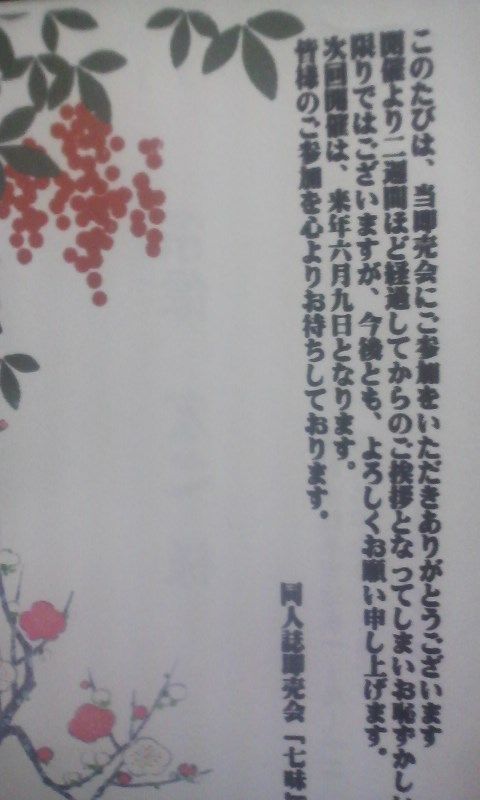 このたびは、当即売会にご参加をいただきありがとうございます
開催より二週間ほど経過してからのご挨拶となってしまいお恥ずかしい
限りではございますが、今後とも、よろしくお願い申し上げます。
次回開催は、来年六月九日となります。
皆様のご参加を心よりお待ちしております。
同人誌即売会「七味」